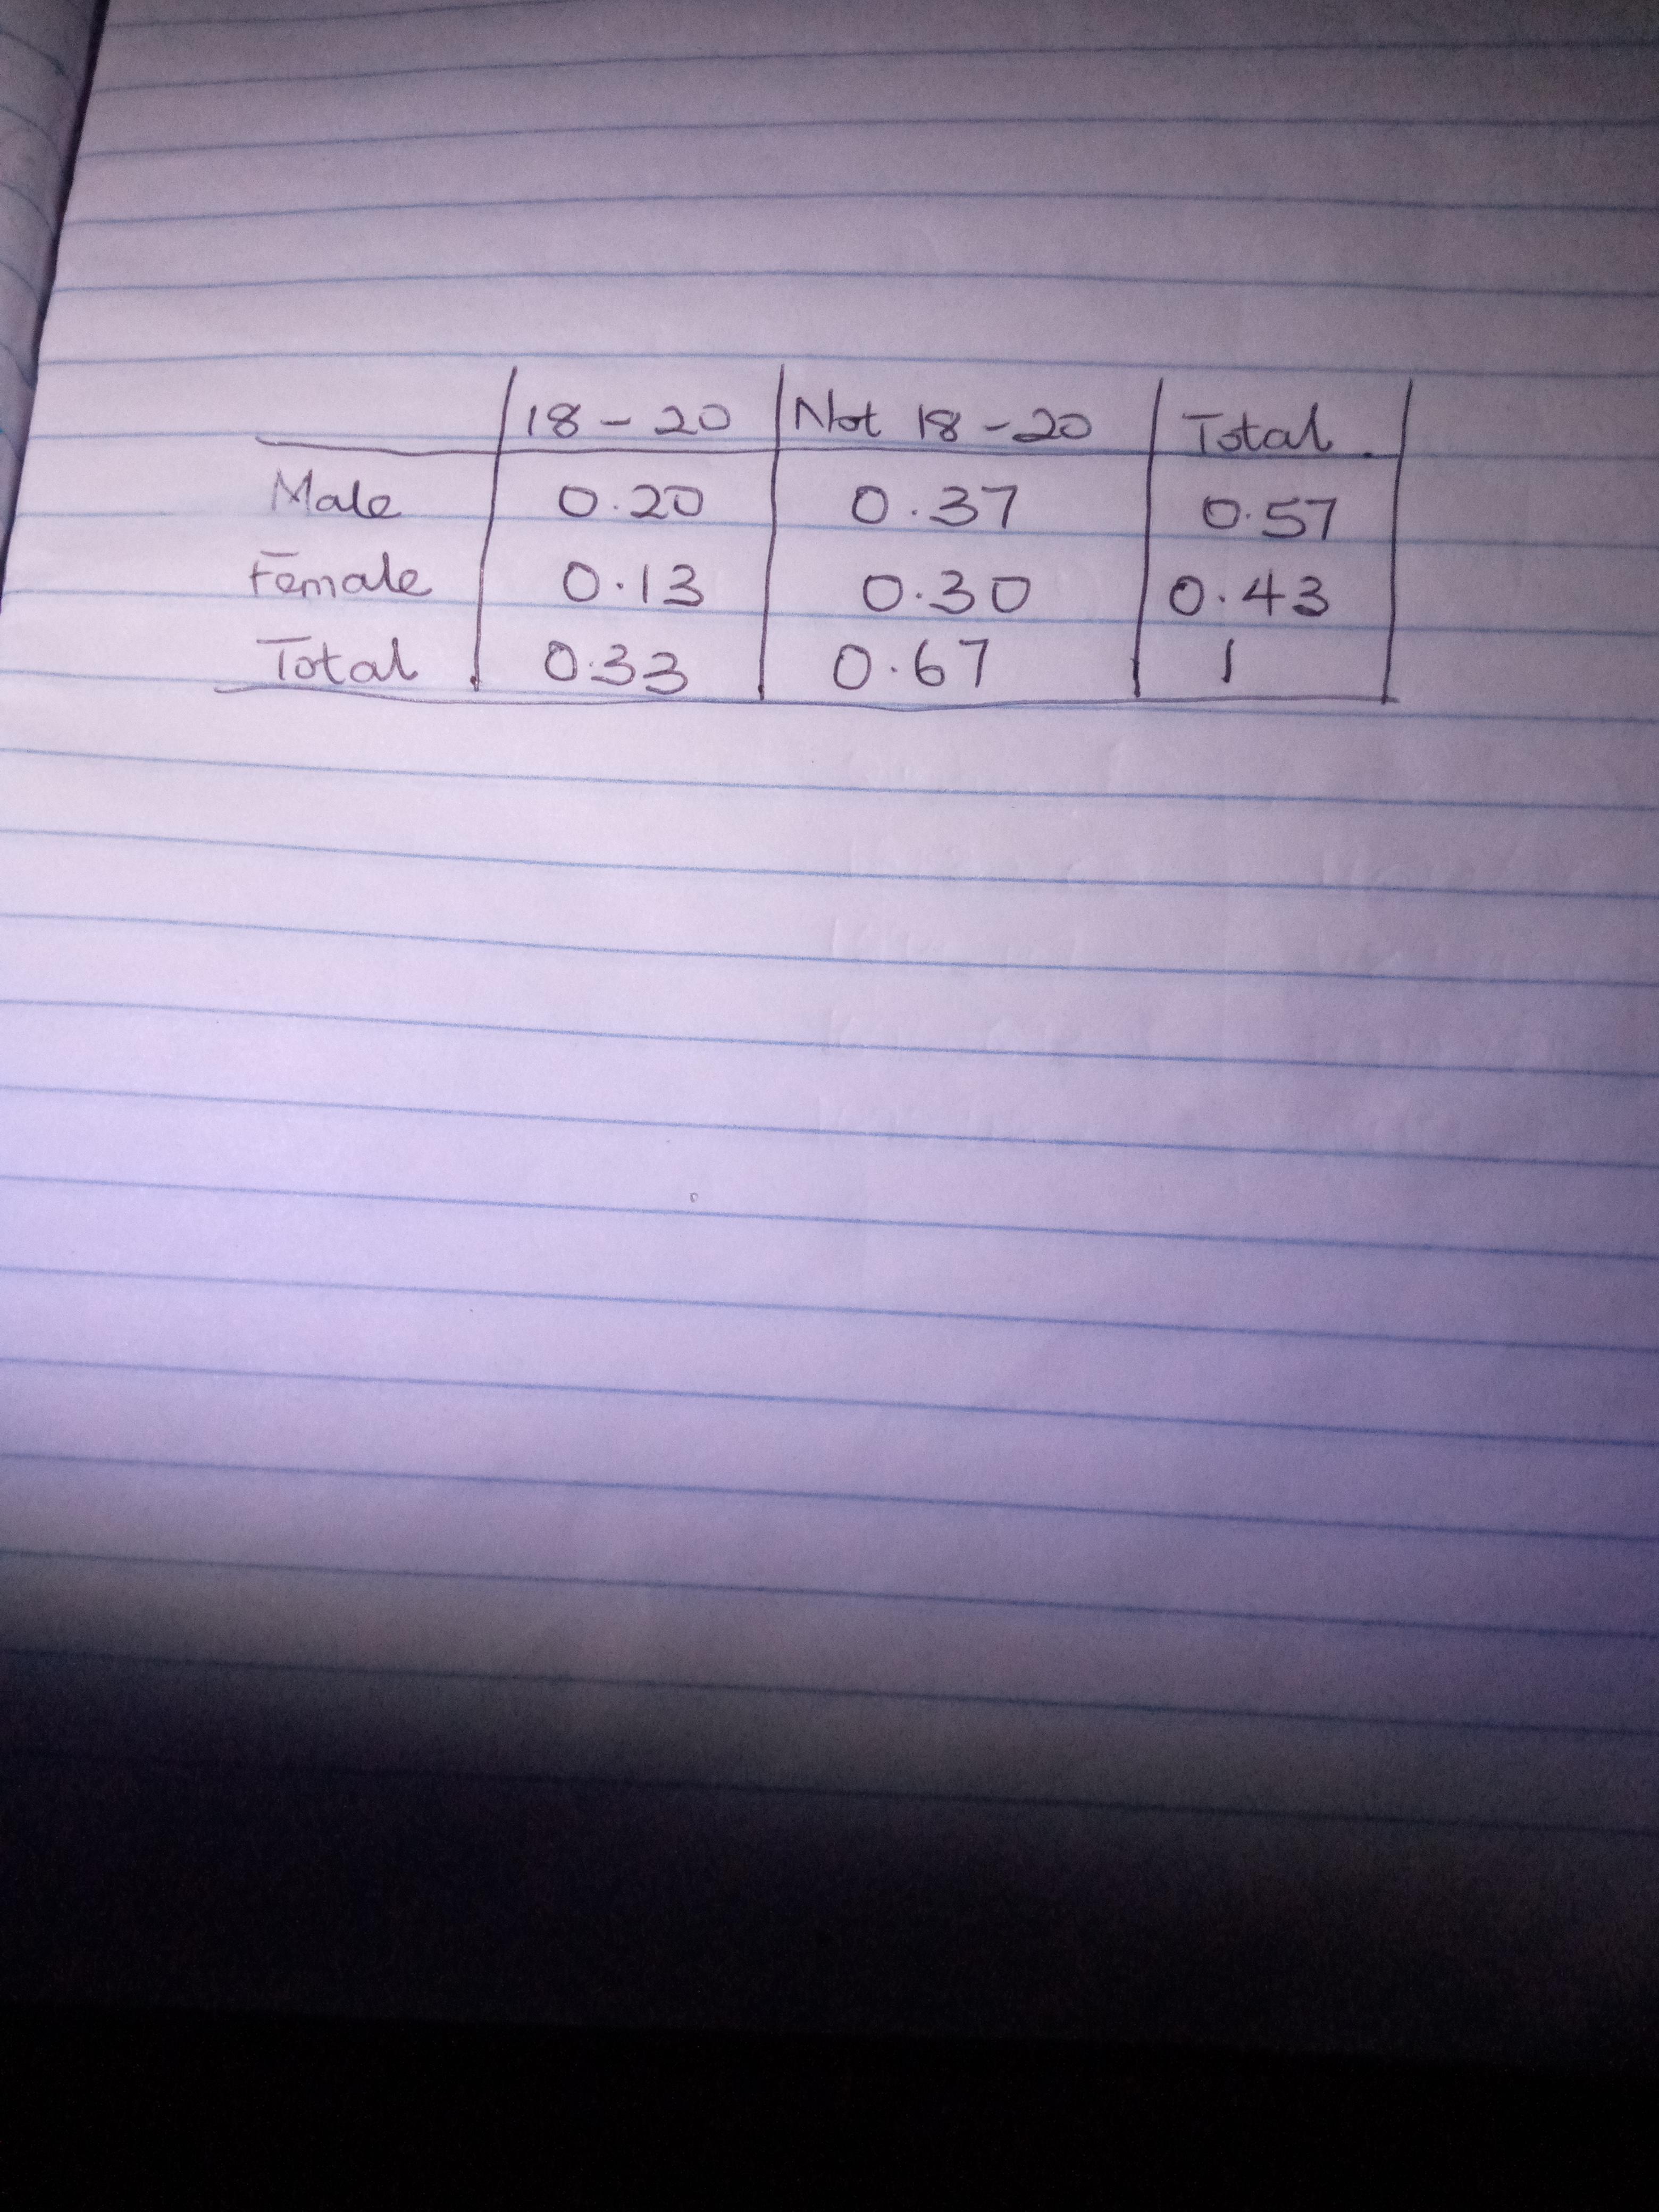 18-20 Not 18-20 Total
Male 0.20 0.37 0.57
Female 0.13 0.30 0.43
Total 0.33 0.67 1